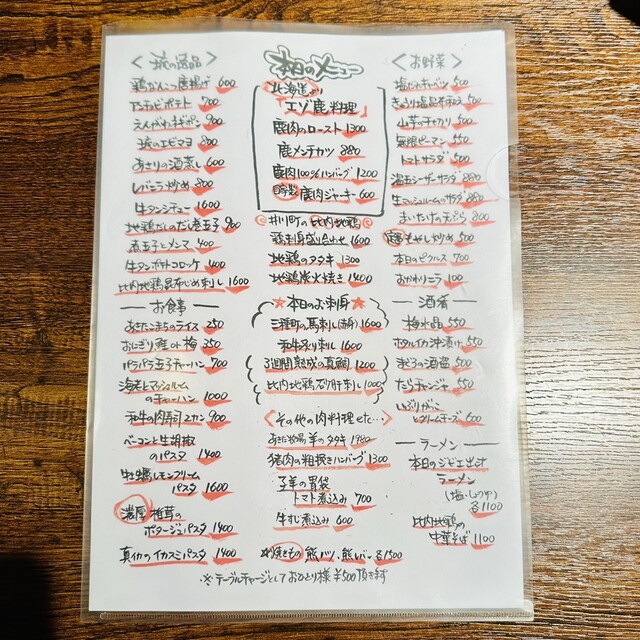 本日のメニュー
＜ 弧の逸品 ＞
鶏なんこつ唐揚げ 600
アンチョビポテト 700
えんがわ柚ポン 900
弧のエビマヨ 800
あさりの酒蒸し 600
レバニラ炒め 800
牛タンシチュー 1600
地鶏だしのだし巻玉子 900
煮玉子とメンマ 400
牛タンポテトコロッケ 400
比内地鶏昆布じめ刺し 1600
お食事
あきたこまちのライス 250
おにぎり 鮭or梅 350
パラパラ玉子チャーハン 700
海老とマッシュルーム
のチャーハン 1000
和牛の肉寿司 2カン 900
ベーコンと生胡椒
のパスタ 1400
牡蠣レモンクリーム
パスタ 1600
濃厚 椎茸の
ポタージュパスタ 1400
真イカのイカスミパスタ 1400
北海道より
「エゾ鹿料理」
鹿肉のロースト 1300
鹿メンチカツ 880
鹿肉100%ハンバーグ 1200
自家製 鹿肉ジャーキー 600
井川町の比内地鶏
鶏刺身盛り合わせ 1600
地鶏のタタキ 1300
地鶏炭火焼き 1400
★本日のお刺身★
三種町の馬刺し(赤身) 1600
和牛炙り刺し 1600
3週間熟成の真鯛 1200
比内地鶏砂肝刺し 1000
＜その他の肉料理 ＞
あきた牧場 羊のタタキ 1980
猪肉の粗挽きハンバーグ 1300
子羊の胃袋
トマト煮込み 700
牛すじ煮込み 600
熊ハツ・熊レバー 各1500
※テーブルチャージとしてお1とり様 ¥500頂きます
＜ お野菜 ＞
塩だれキャベツ 500
きゅうり塩昆布和え 500
山芋の千切り 500
無限ピーマン 550
トマトサラダ 500
温玉シーザーサラダ 880
生マッシュルームのサラダ 880
まいたけの天ぷら 800
もやし炒め 500
本日のピクルス 700
おかわりニラ 100
酒肴
梅水晶 550
ホタルイカ沖漬け 550
まぐろの酒盗 550
たらチャンジャ 550
いぶりがっこ
とクリームチーズ 600
ラーメン
本日のジビエ出汁
ラーメン
(塩・しょうゆ)
各1100
比内地鶏の
中華そば 1100